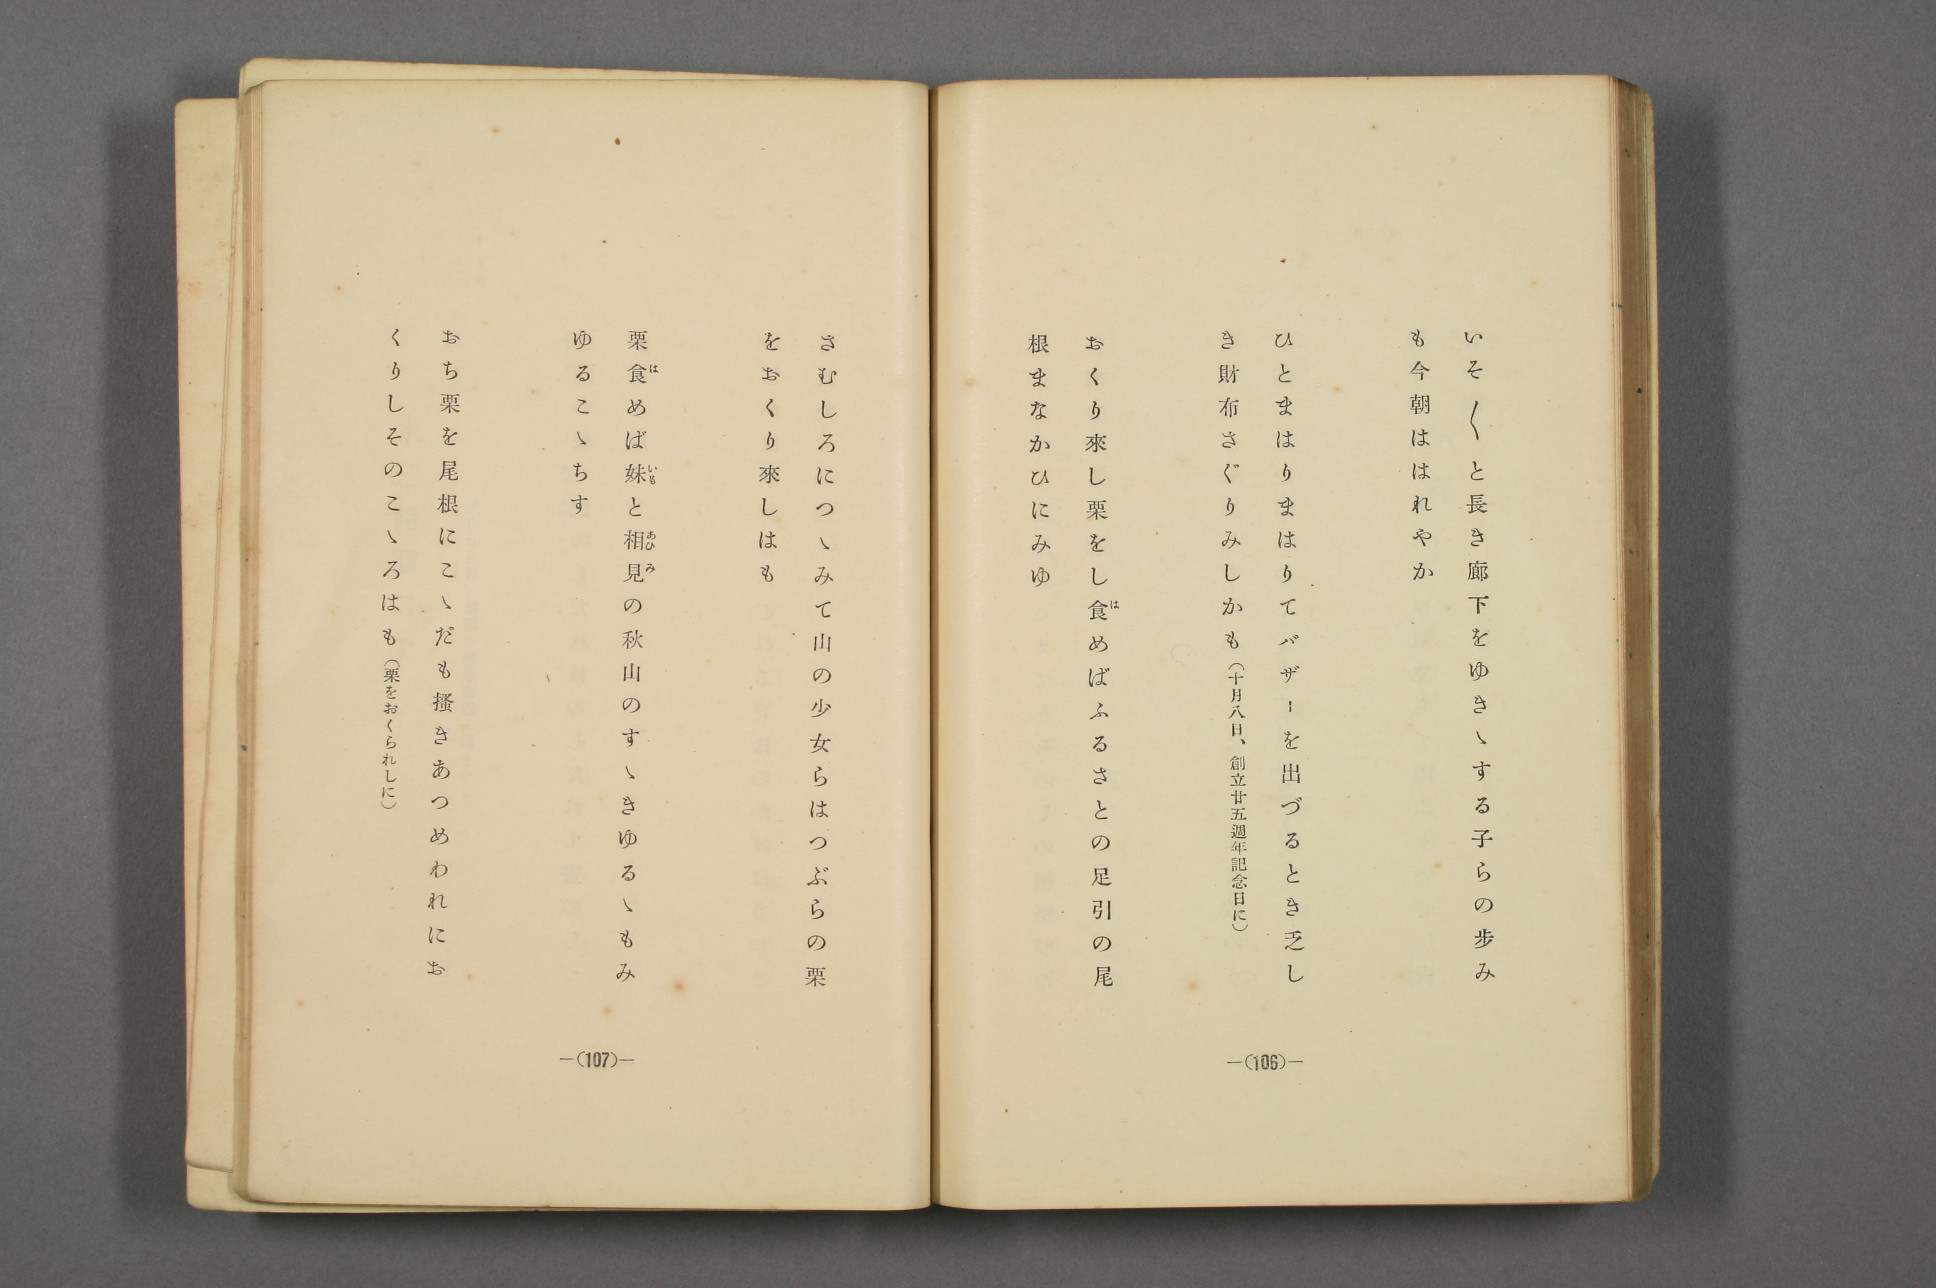 いそ〳〵と長き廊下をゆきゝする子らの歩み
も今朝ははれやか
ひとまはりまはりてバザーを出づるとき乏し
き財布さぐりみしかも（十月八日、創立廿五週年記念日に）
おくり來し栗をし食めばふるさとの足引の尾
根まなかひにみゆ
—(106)—
さむしろにつゝみて山の少女らはつぶらの栗
をおくり來しはも
栗食めば妹と相見の秋山のすゝきゆるゝもみ
ゆるこゝちす
おち栗を尾根にこゝだも搔きあつめわれにお
くりしそのこゝろはも（栗をおくられしに）
—(107)—